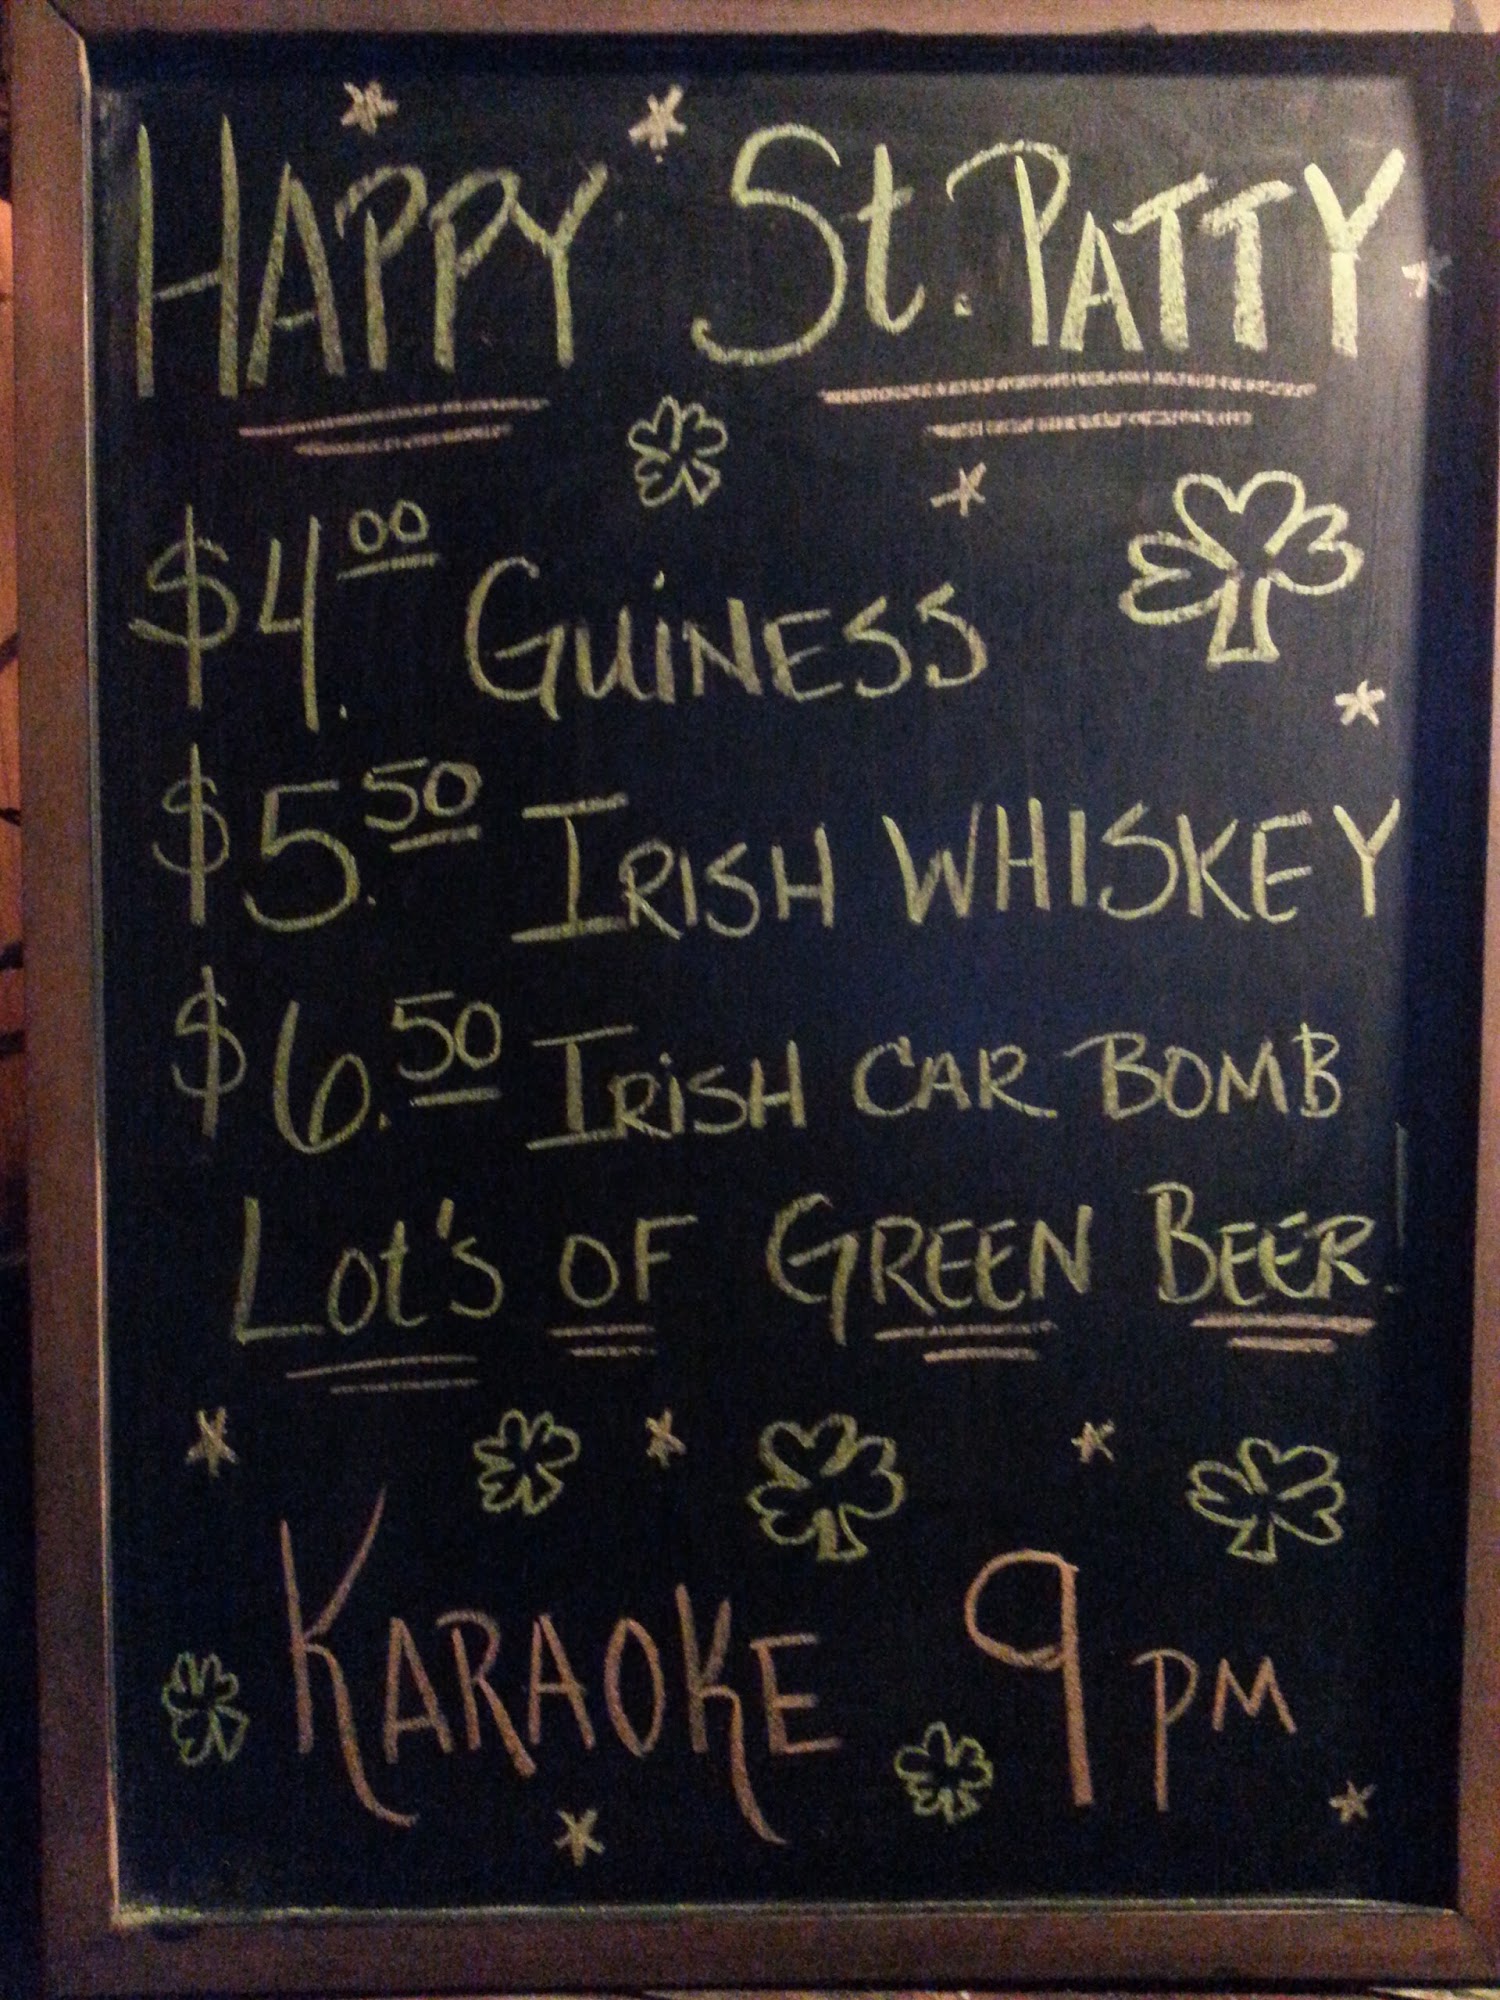 HAPPY St. PATTY
$4.00 GUINESS
$5.50 IRISH WHISKEY
$6.50 IRISH CAR BOMB
Lot's OF GREEN BEER
KARAOKE 9 PM